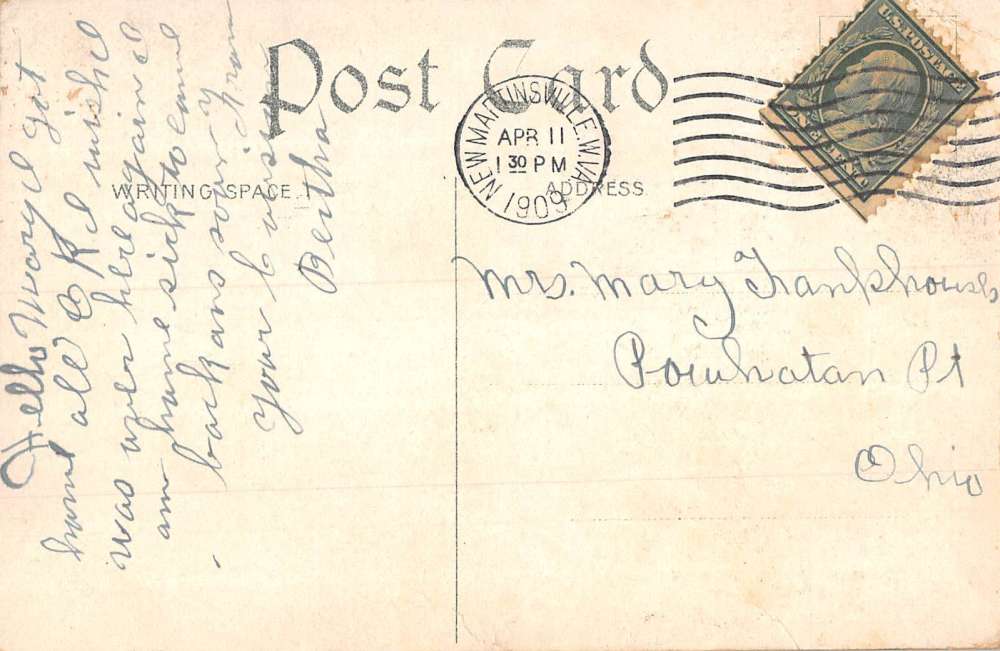 Post Card
WRITING SPACE
ADDRESS
NEW MARTINSVILLE, W.VA.
APR 11
1 30 PM
1909
U.S. POSTAGE
ONE CENT
Hello Mary I got
home all O K I wished
was over here againe
am home sick to come
back ans soon
from
Your
Bertha
Mrs. Mary Frankhouse
Powhatan Pt
Ohio